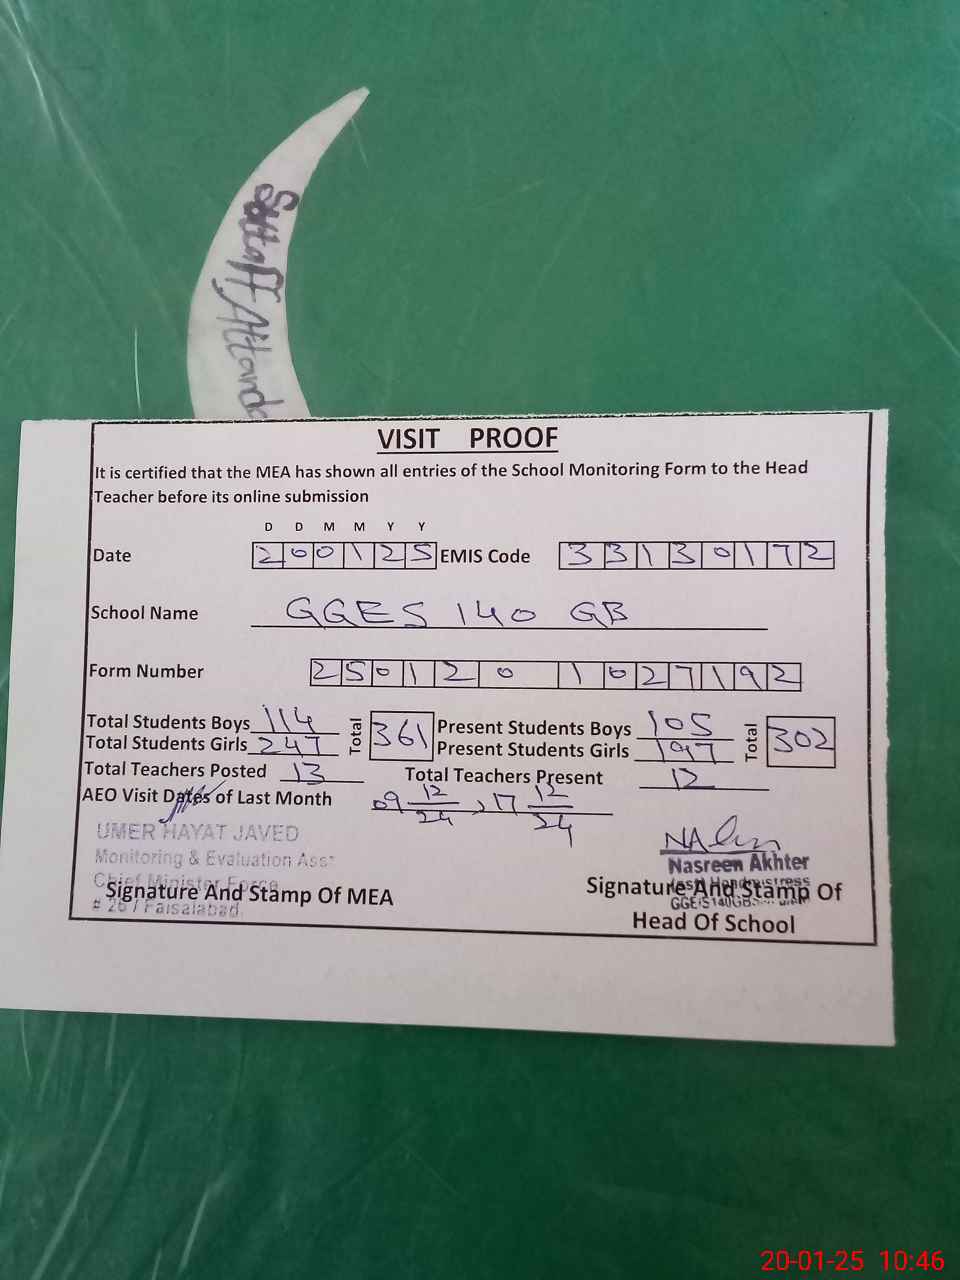 Staff Attand
VISIT PROOF
It is certified that the MEA has shown all entries of the School Monitoring Form to the Head
Teacher before its online submission
D D M M Y Y
Date 200125 EMIS Code 33130172
School Name GGES 140 GB
Form Number 2501201027192
Total Students Boys 114 Total 361 Present Students Boys 105 Total 302
Total Students Girls 247 Present Students Girls 197
Total Teachers Posted 13 Total Teachers Present 12
AEO Visit Dates of Last Month 09 12/24, 17 12/24
UMER HAYAT JAVED
Monitoring & Evaluation Asst
Chief Minister Force
# 267 Faisalabad.
Signature And Stamp Of MEA
Nasreen Akhter
Headmistress
GGES 140GB
Signature And Stamp Of
Head Of School
20-01-25 10:46